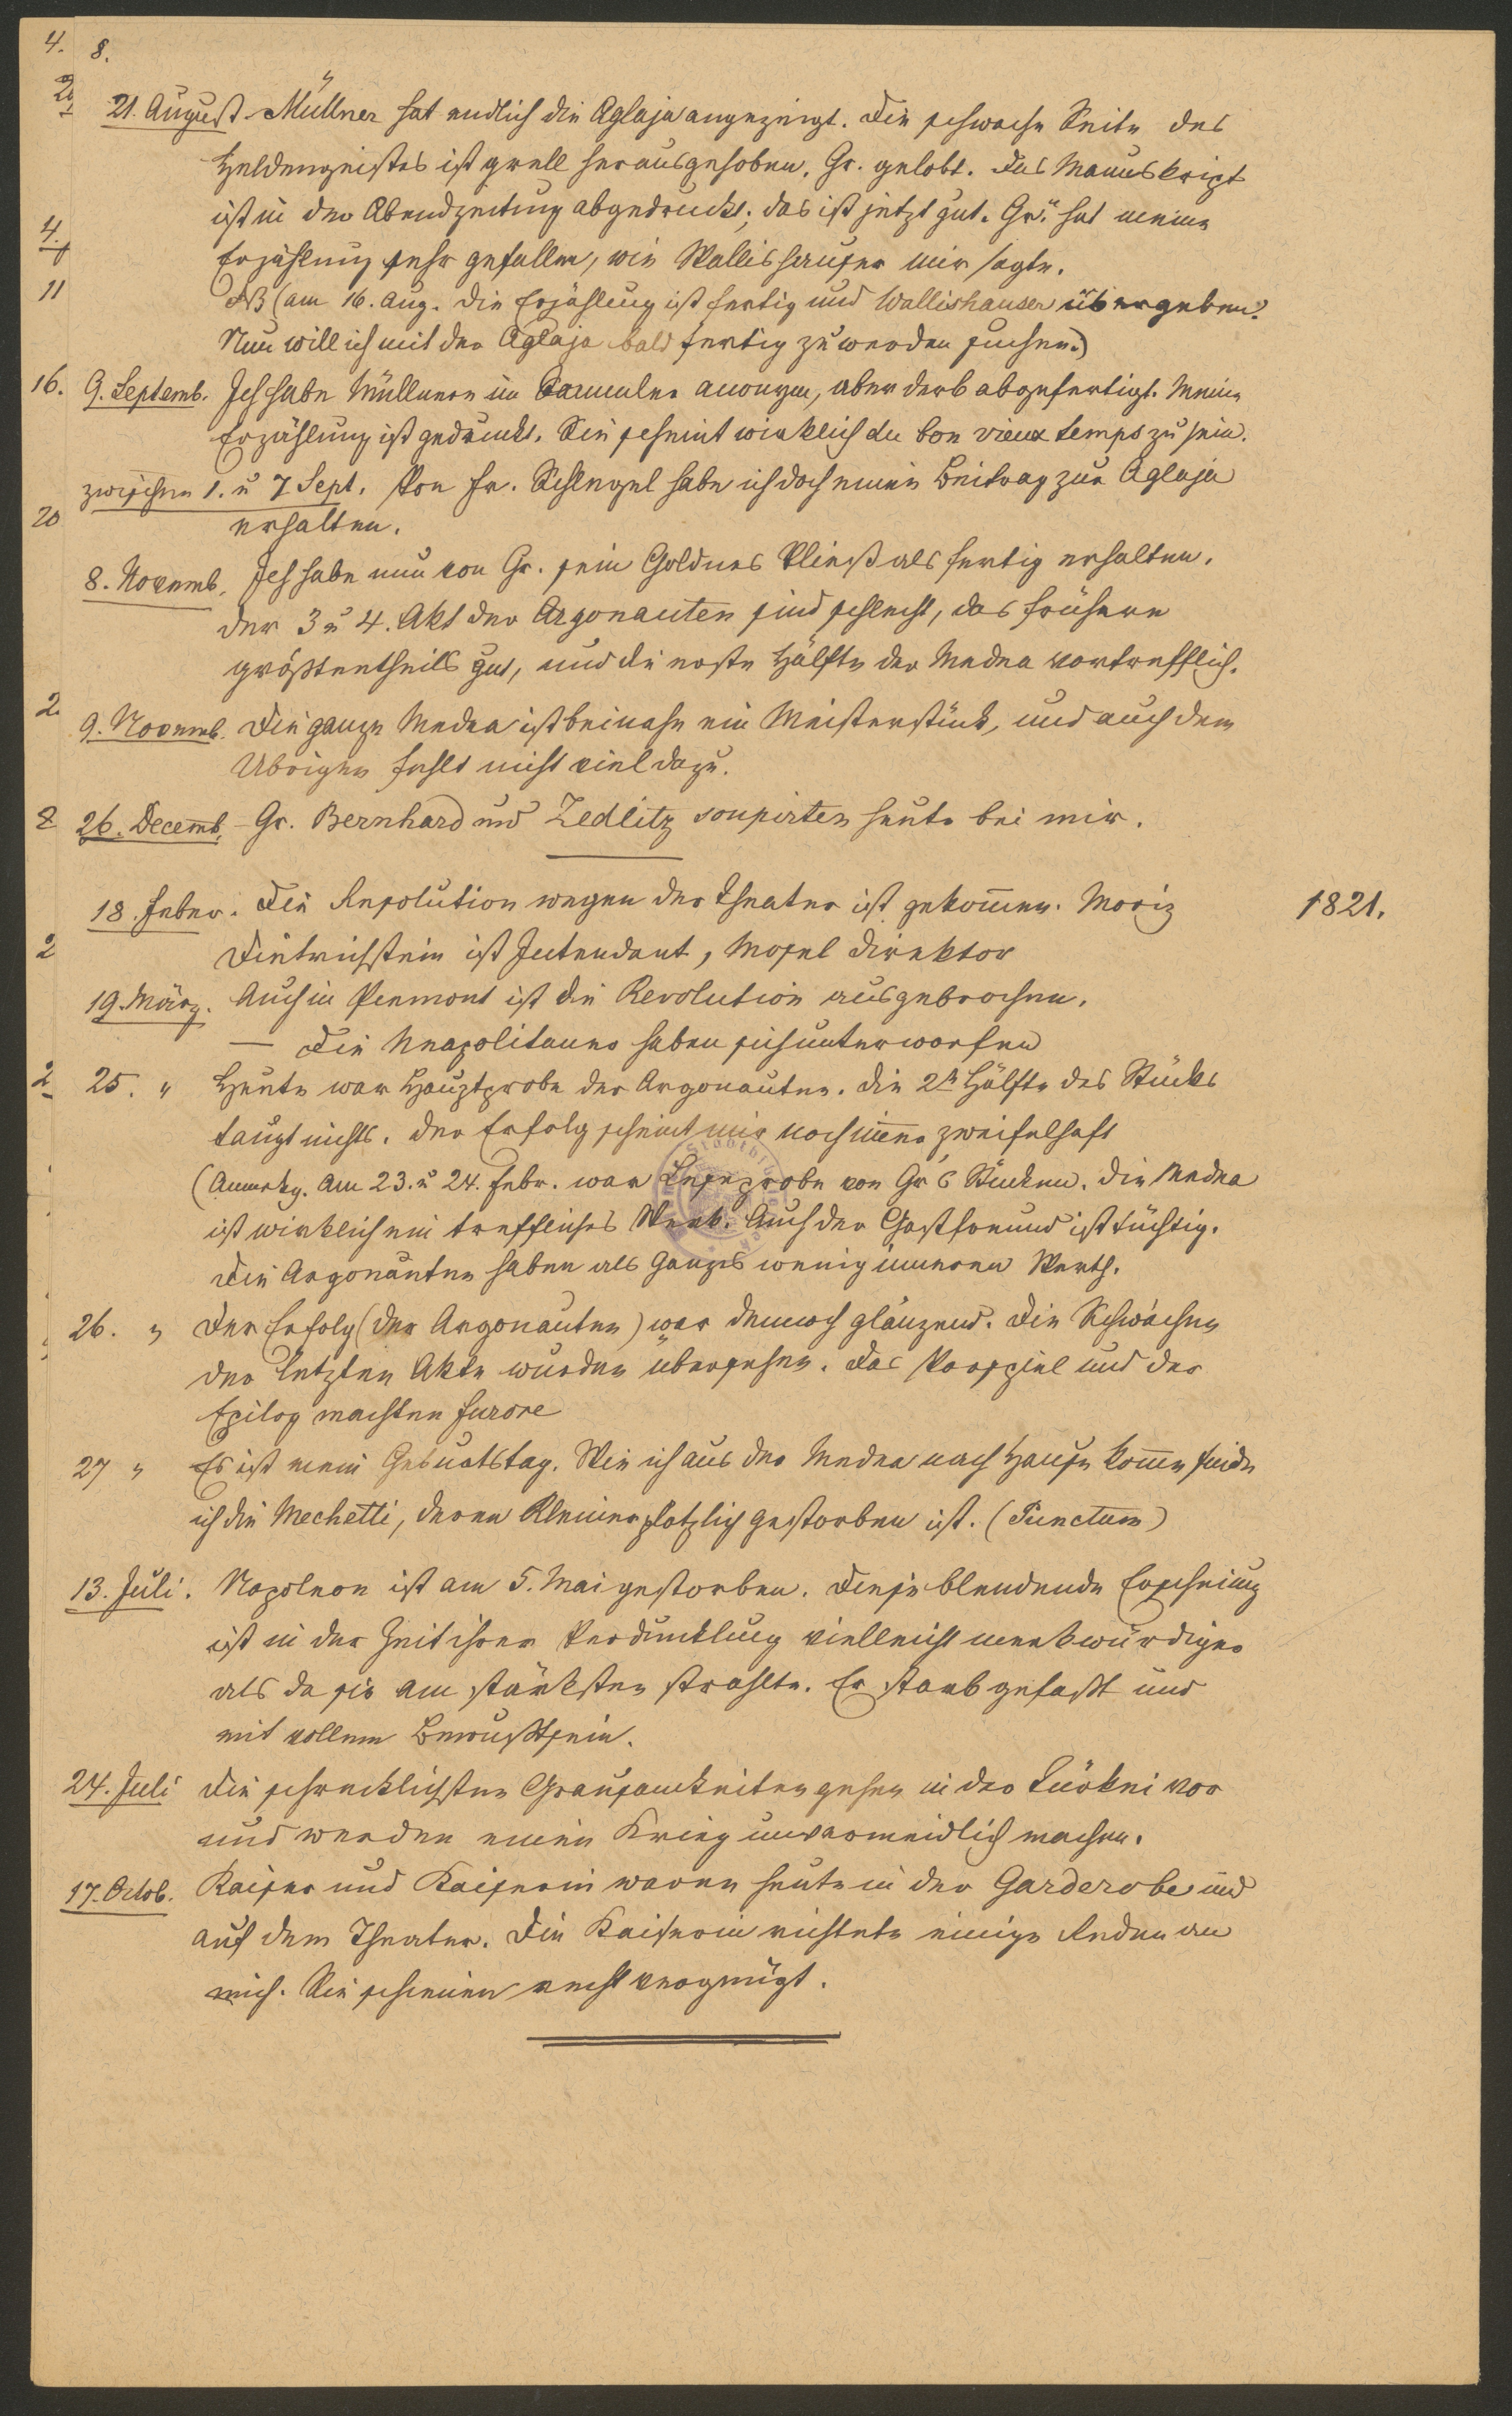 8.
21. August Müllner hat endlich die Aglaja angezeigt. Die schwache Seite des
Heldengeistes ist grell herausgehoben, Gr. gelobt. Das Manuskript
ist in der Abendzeitung abgedruckt; das ist jetzt gut. Gr. hat meine
Erzählung sehr gefallen, wie Wallishauser mir sagte.
NB (am 16. Aug. Die Erzählung ist fertig und Wallishauser übergeben.
Nun will ich mit der Aglaja bald fertig zu werden suchen.)
9. Septemb. Ich habe Müllnern im Sammler anonym, aber derb abgefertigt. Meine
Erzählung ist gedruckt. Sie scheint wirklich du bon vieux temps zu sein.
zwischen 1. u 7 Sept. Von Fr. Schlegel habe ich doch einen Beitrag zur Aglaja
erhalten.
8. Novemb. Ich habe nun von Gr. sein Goldnes Vließ als fertig erhalten.
der 3 u 4. Akt der Argonauten sind schlecht, das frühere
größtentheils gut, und die erste Hälfte der Medea vortrefflich.
9. Novemb. Die ganze Medea ist beinahe ein Meisterstück, und auch dem
Übrigen fehlt nicht viel dazu.
26. Decemb. - Gr. Bernhard und Zedlitz soupirten heute bei mir.
18. Feber. Die Resolution wegen der Theater ist gekommen. Moriz
1821.
Dietrichstein ist Intendant, Mosel Direktor
19. März. Auch in Piemont ist die Revolution ausgebrochen.
— Die Neapolitaner haben sich unterworfen
25. " Heute war Hauptprobe der Argonauten. Die 2te Hälfte des Stücks
taugt nichts. Der Erfolg scheint mir noch immer zweifelhaft
(Anmerkg. Am 23. u 24. Febr. war Leseprobe von Gr's Stücken. Die Medea
ist wirklich ein treffliches Werk. Auch der Gastfreund ist tüchtig.
Die Argonauten haben als Ganzes wenig inneren Werth.
26. " Der Erfolg (der Argonauten) war dennoch glänzend. Die Schwächen
der letzten Akte wurden übersehen. Das Vorspiel und der
Epilog machten furore
27 " Es ist mein Geburtstag. Wie ich aus der Medea nach Hause komme finde
ich die Mechetti, deren Kleiner plötzlich gestorben ist. (Punctum)
13. Juli. Napoleon ist am 5. Mai gestorben. Diese blendende Erscheinung
ist in der Zeit ihrer Verdunklung vielleicht merkwürdiger
als da sie am stärksten strahlte. Er starb gefaßt und
mit vollem Bewußtsein.
24. Juli Die schrecklichsten Grausamkeiten gehen in der Türkei vor
und werden einen Krieg unvermeidlich machen.
17. Octob. Kaiser und Kaiserin waren heute in der Garderobe und
auf dem Theater. Die Kaiserin richtete einige Reden an
mich. Sie schienen recht vergnügt.